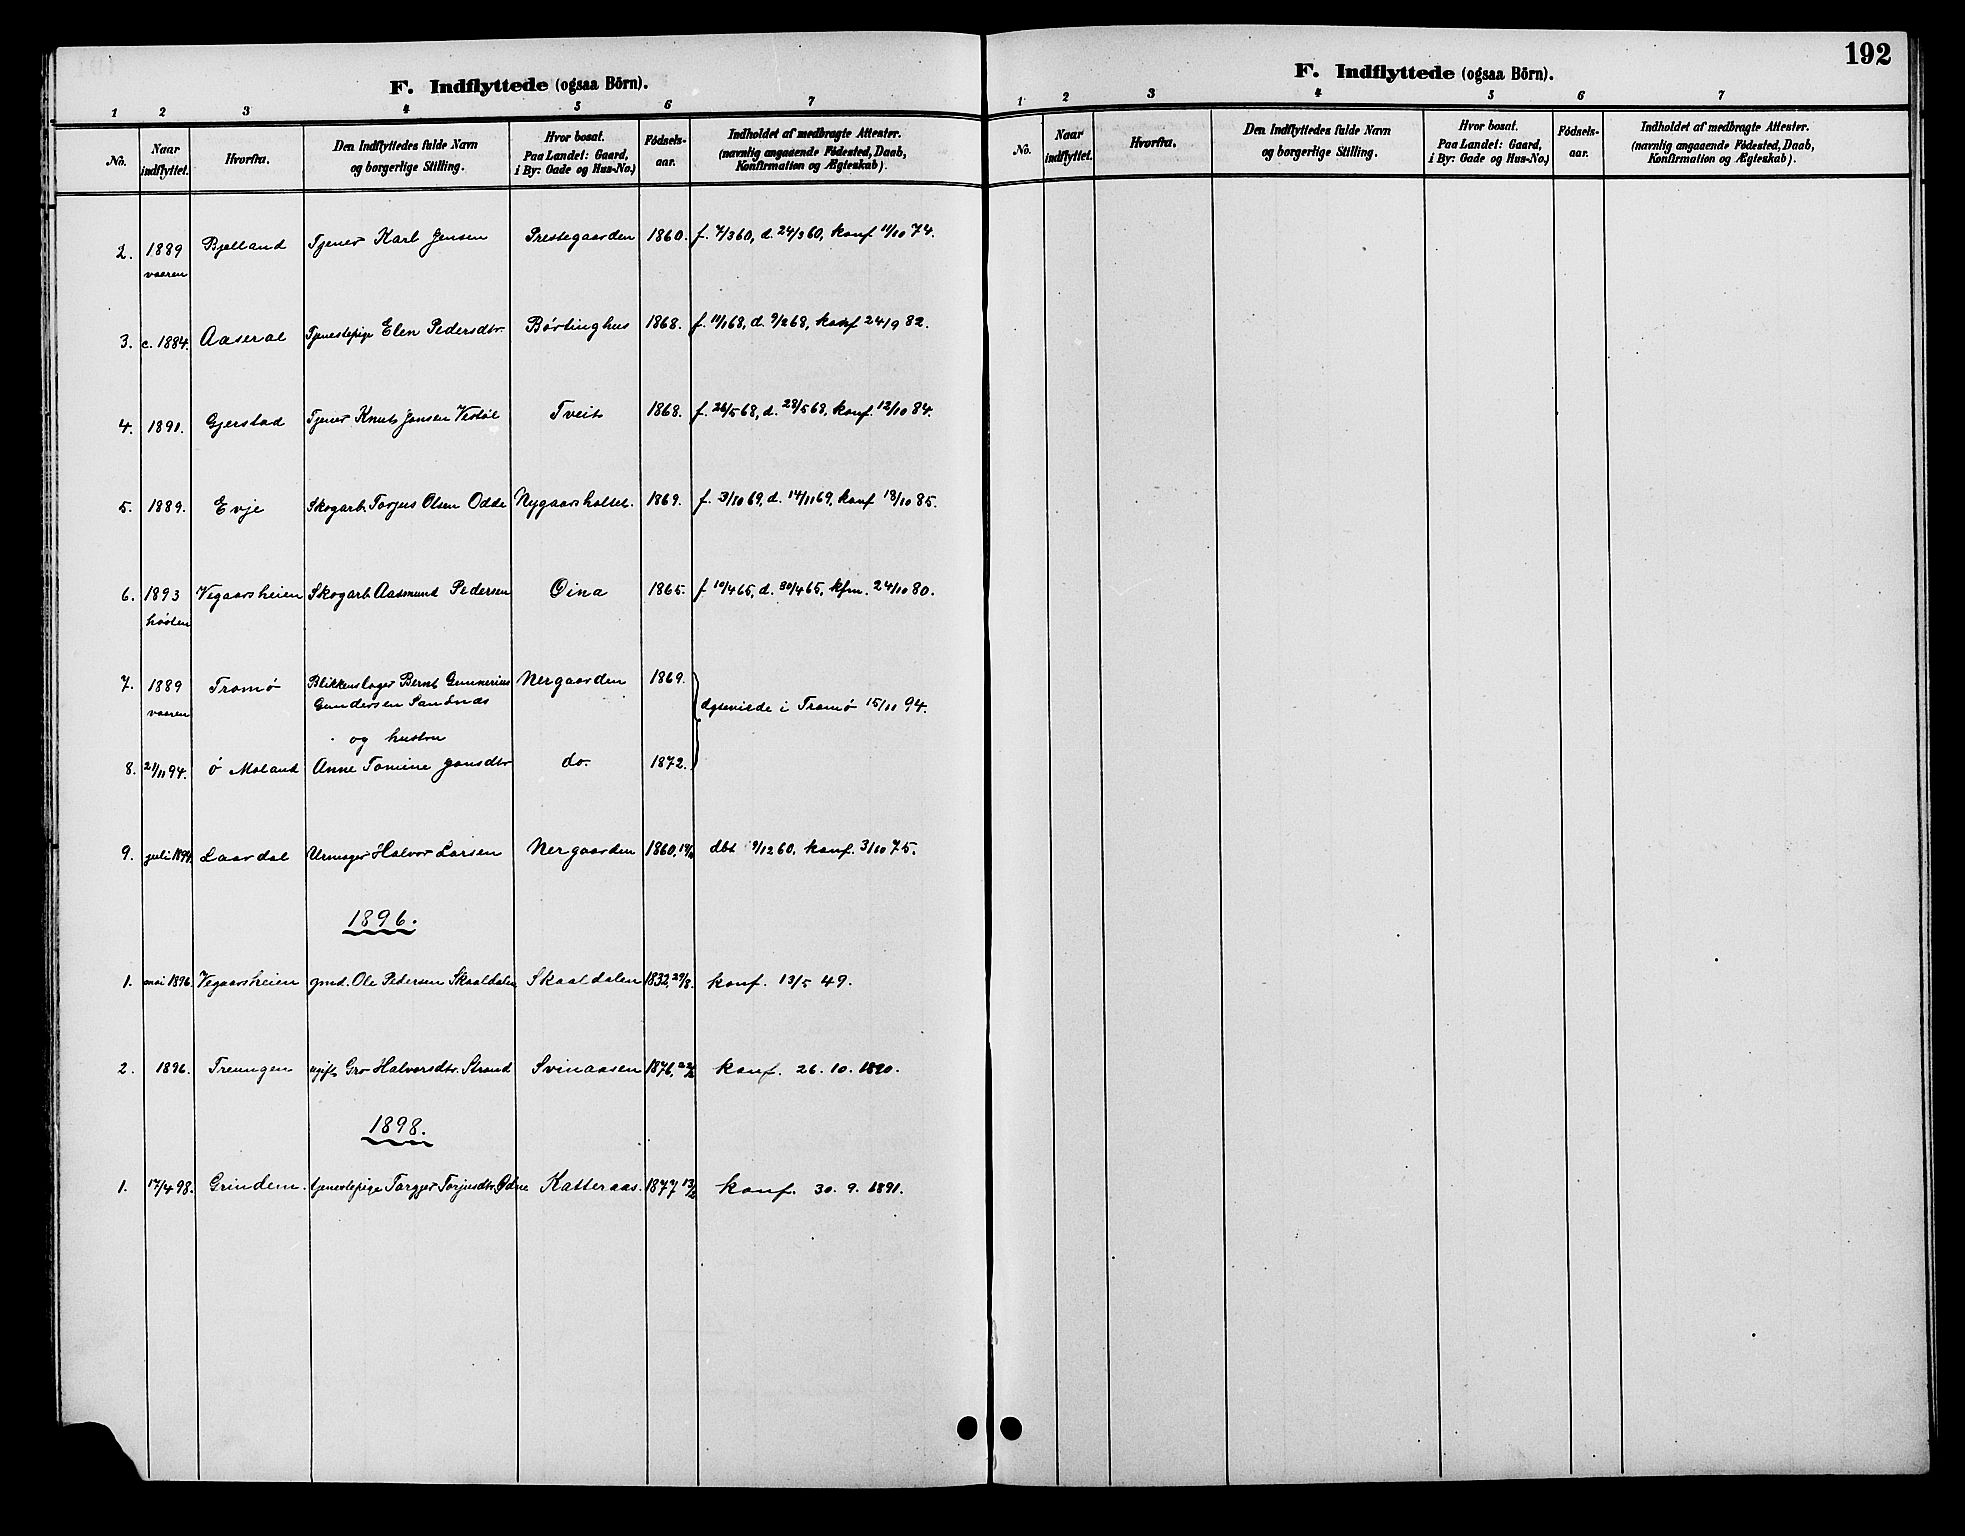 F. Indflyttede (ogsaa Börn).
1 2 3 4 5 6 7
No. Naar indflyttet. Hvorfra. Den Indflyttedes fulde Navn og borgerlige Stilling. Hvor bosat. Paa Landet: Gaard, i By: Gade og Hus-No.) Fødsels-aar. Indholdet af medbragte Attester. (navnlig angaaende Fødested, Daab, Konfirmation og Ægteskab).
2. 1889 Bjelland Tjener Karl Jensen Prestegaarden 1860. f. 7/3 60, d. 24/3 60, konf 11/10 74.
vaaren
3. c. 1884. Aaseral Tjenestepige Elen Pedersdtr. Børtinghus 1868. f. 11/1 68, d. 9/2 68, konf 24/9 82.
4. 1891. Gjerstad Tjener Knut Jensen Vestøl Tveit 1868. f. 26/5 68, d. 28/5 68, konf. 12/10 84.
5. 1889. Evje Skogarb. Torjus Olsen Odde Nygaarsholtet. 1869. f. 3/10 69, d. 14/11 69, konf 18/10 85.
6. 1893 Vegaarsheien Skogarb. Aasmund Pedersen Oina 1865. f 10/4 65, d. 30/4 65, kfm. 24/10 80.
høsten
7. 1889 Tromø Blikkenslager Bernt Gunnerius Nergaarden 1869.
vaaren Gundersen Sandnes ægteviede i Tromø 15/11 94.
og hustru
8. 21/11 94. Ø Moland Anne Tomine Jensdtr do. 1872.
9. juli 1894. Laardal Urmager Halvor Larsen Nergaarden 1860, 19/11 dbt 9/12 60. konf. 3/10 75.
1896.
1. mai 1896. Vegaarsheien gmd. Ole Pedersen Skaaldalen Skaaldalen 1832, 29/8. konf. 13/5 49.
2. 1896. Treungen ugift Gro Halvorsdtr. Strand Svinaasen 1876, konf. 26. 10. 1890.
1898.
1. 17/4 98. Grindem. tjenestepige Torgjer Torjusdtr. Katteraas. 1877 konf. 30. 9. 1891.
192
F. Indflyttede (ogsaa Börn).
1 2 3 4 5 6 7
No. Naar indflyttet. Hvorfra. Den Indflyttedes fulde Navn og borgerlige Stilling. Hvor bosat. Paa Landet: Gaard, i By: Gade og Hus-No.) Fødsels-aar. Indholdet af medbragte Attester. (navnlig angaaende Fødested, Daab, Konfirmation og Ægteskab).